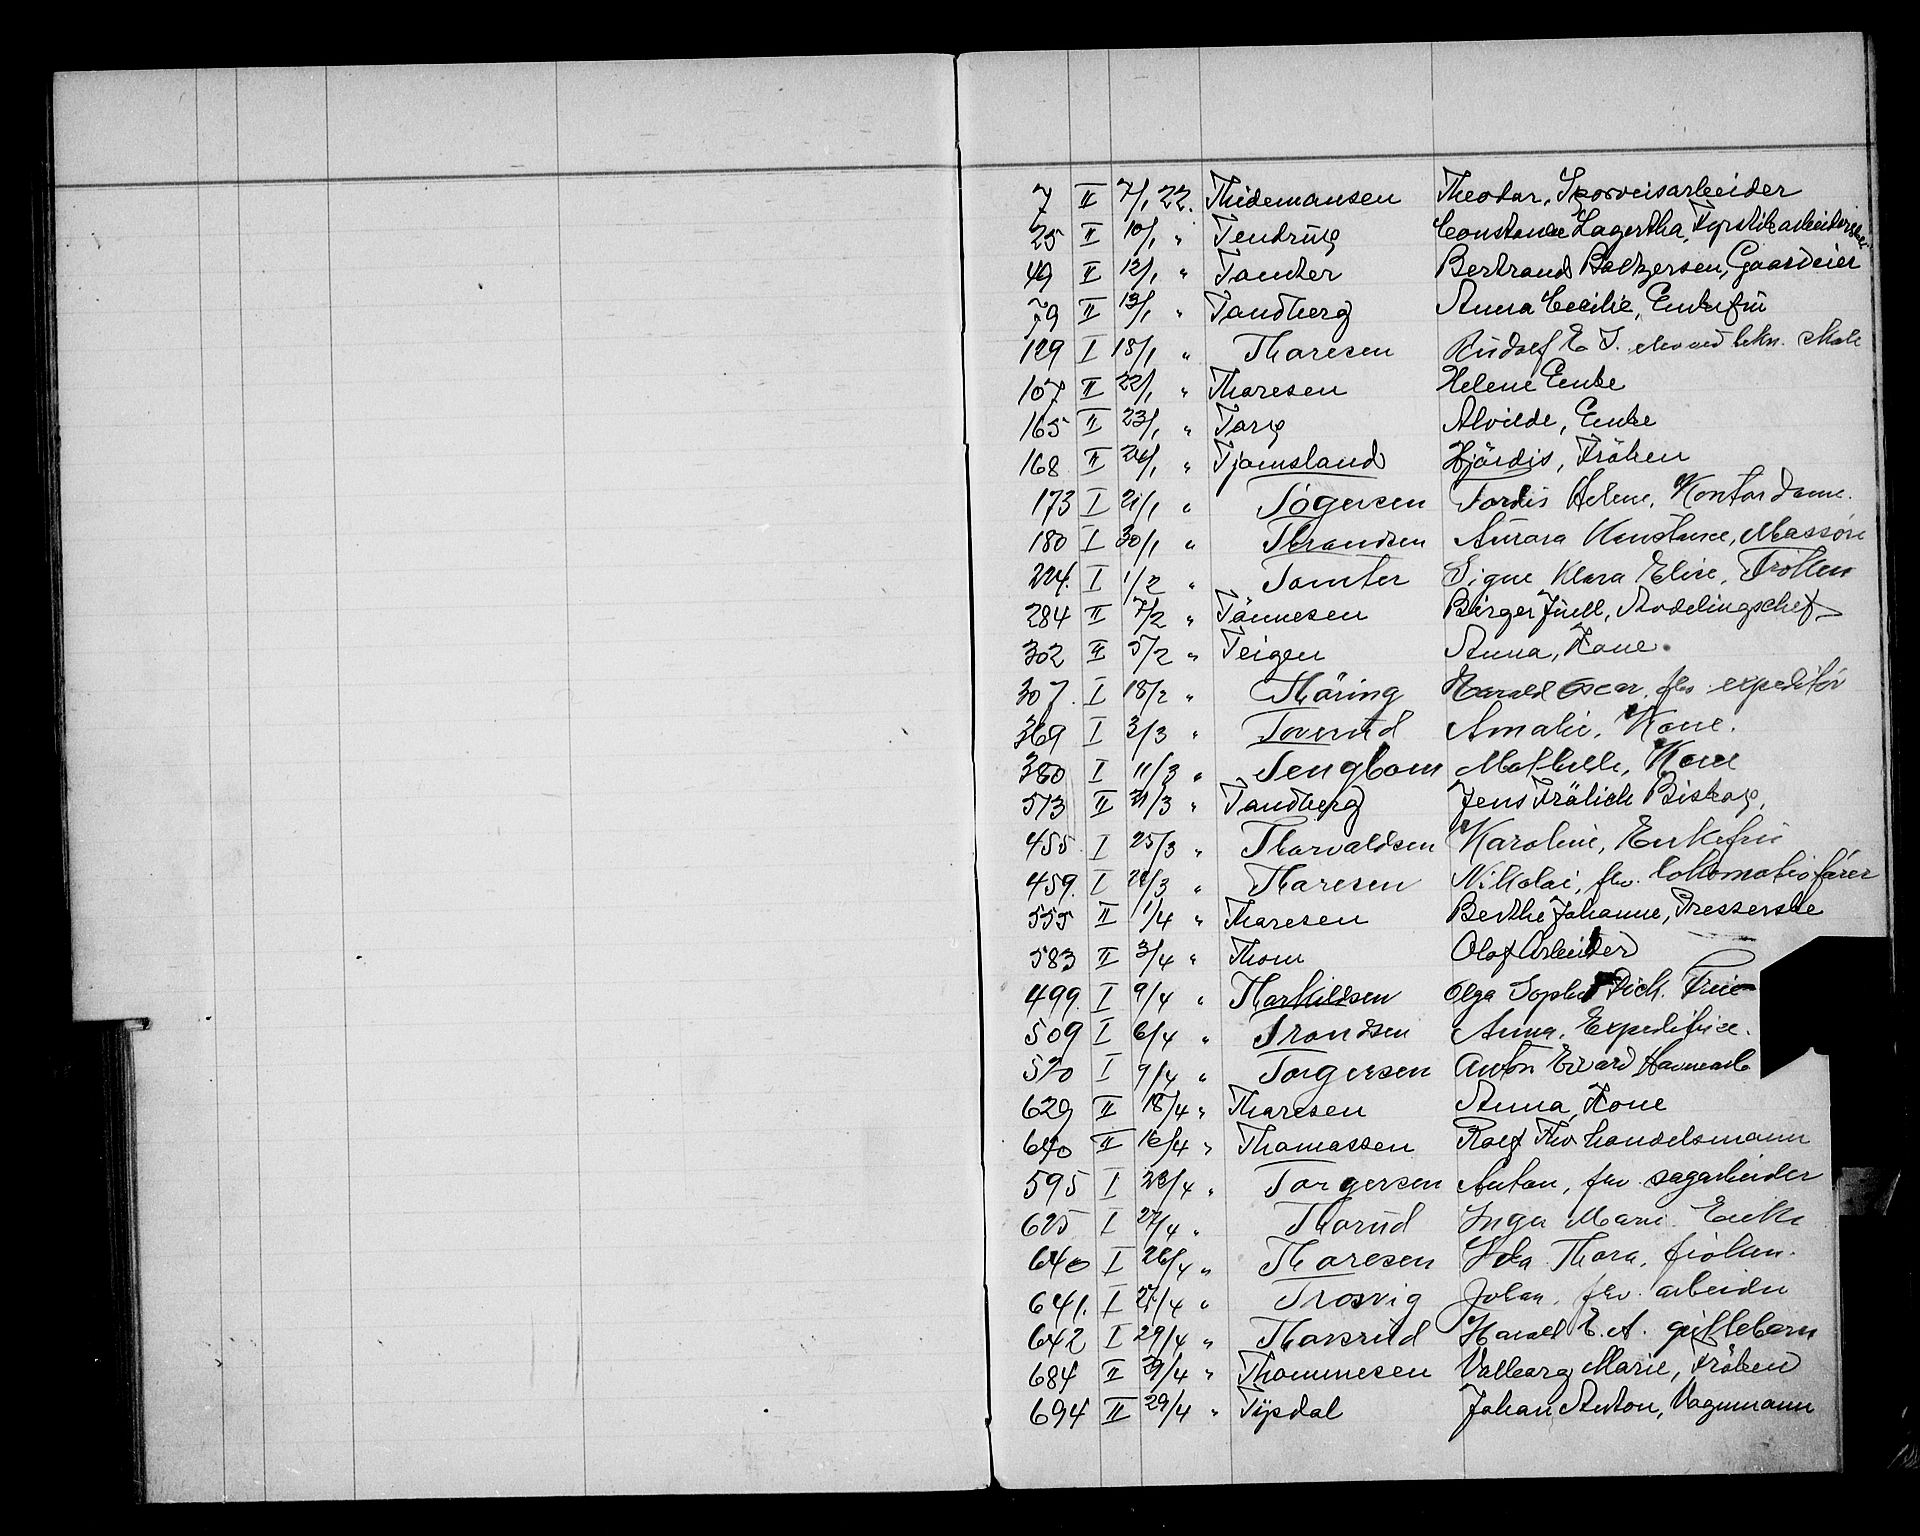 7 II 7/1 22. Thidemansen Theodor, Sporveisarbeider
25 II 10/1 " Tendrup Constance Lagertha, Fyrstikarbeiderske
49 II 12/1 " Tamter Bertrand Baltzersen, Gaardeier
79 II 13/1 " Tandberg Anna Cecilie, Enkefrü
129 I 18/1 " Thoresen Rudolf E. T. elev ved tekn. skole
107 II 22/1 " Thoresen Helene Enke
165 II 23/1 " Torp Alvilde, Enke
168 II 24/1 " Tjomsland Hjördis, Fröken
173 I 21/1 " Torgersen Tordis Helene, Kontordame.
180 I 30/1 " Throndsen Aurora Konstance, Massøse
224. I 1/2 " Tomter Signe Klara Elise, Frøken
284 II 7/2 " Tönnesen Birger Juell, Avdelingschef
302 II 5/2 " Teigen Anna, Kone.
307. I 18/2 " Thöring Harald Oscar, fhv. expeditør
369 I 3/3 " Toverud Amalie, Kone.
380 I 11/3 " Tengbom Mathilde, Kone
513 II 21/3 " Tandberg Jens Frölich Biskop,
455 I 25/3 " Thorvaldsen Karoline, Enkefrü
459. I 28/3 " Thoresen Nikolai, fhv. lokomotivfører
555 II 1/4 " Thoresen Berthe Johanne, Presserske
583 II 3/4 " Thom Olaf Arbeider
499. I 9/4 " Thorkildsen Olga Sophie Dick. Frue
509 I 6/4 " Trondsen Anna, Expeditrice.
570 I 9/4 " Torgersen Anton Edvard Havnearb
629 II 18/4 " Thoresen Anna, Kone
670 II 16/4 " Thomassen Rolf Thv. handelsmann
595 I 23/4 " Torgersen Anton, fhv. sagarbeider
625 I 27/4 " Thorud Inga Marie Enke
640 I 26/4 " Thoresen Ida Thora, frøken.
641. I 27/4 " Trosvig Johan, fhv. arbeider
642 I 29/4 " Thorsrud Harald E. A. guttebarn
684 II 29/4 " Thommesen Valborg Marie, Fröken
694 II 29/4 " Typdal Johan Anton, Vognmann